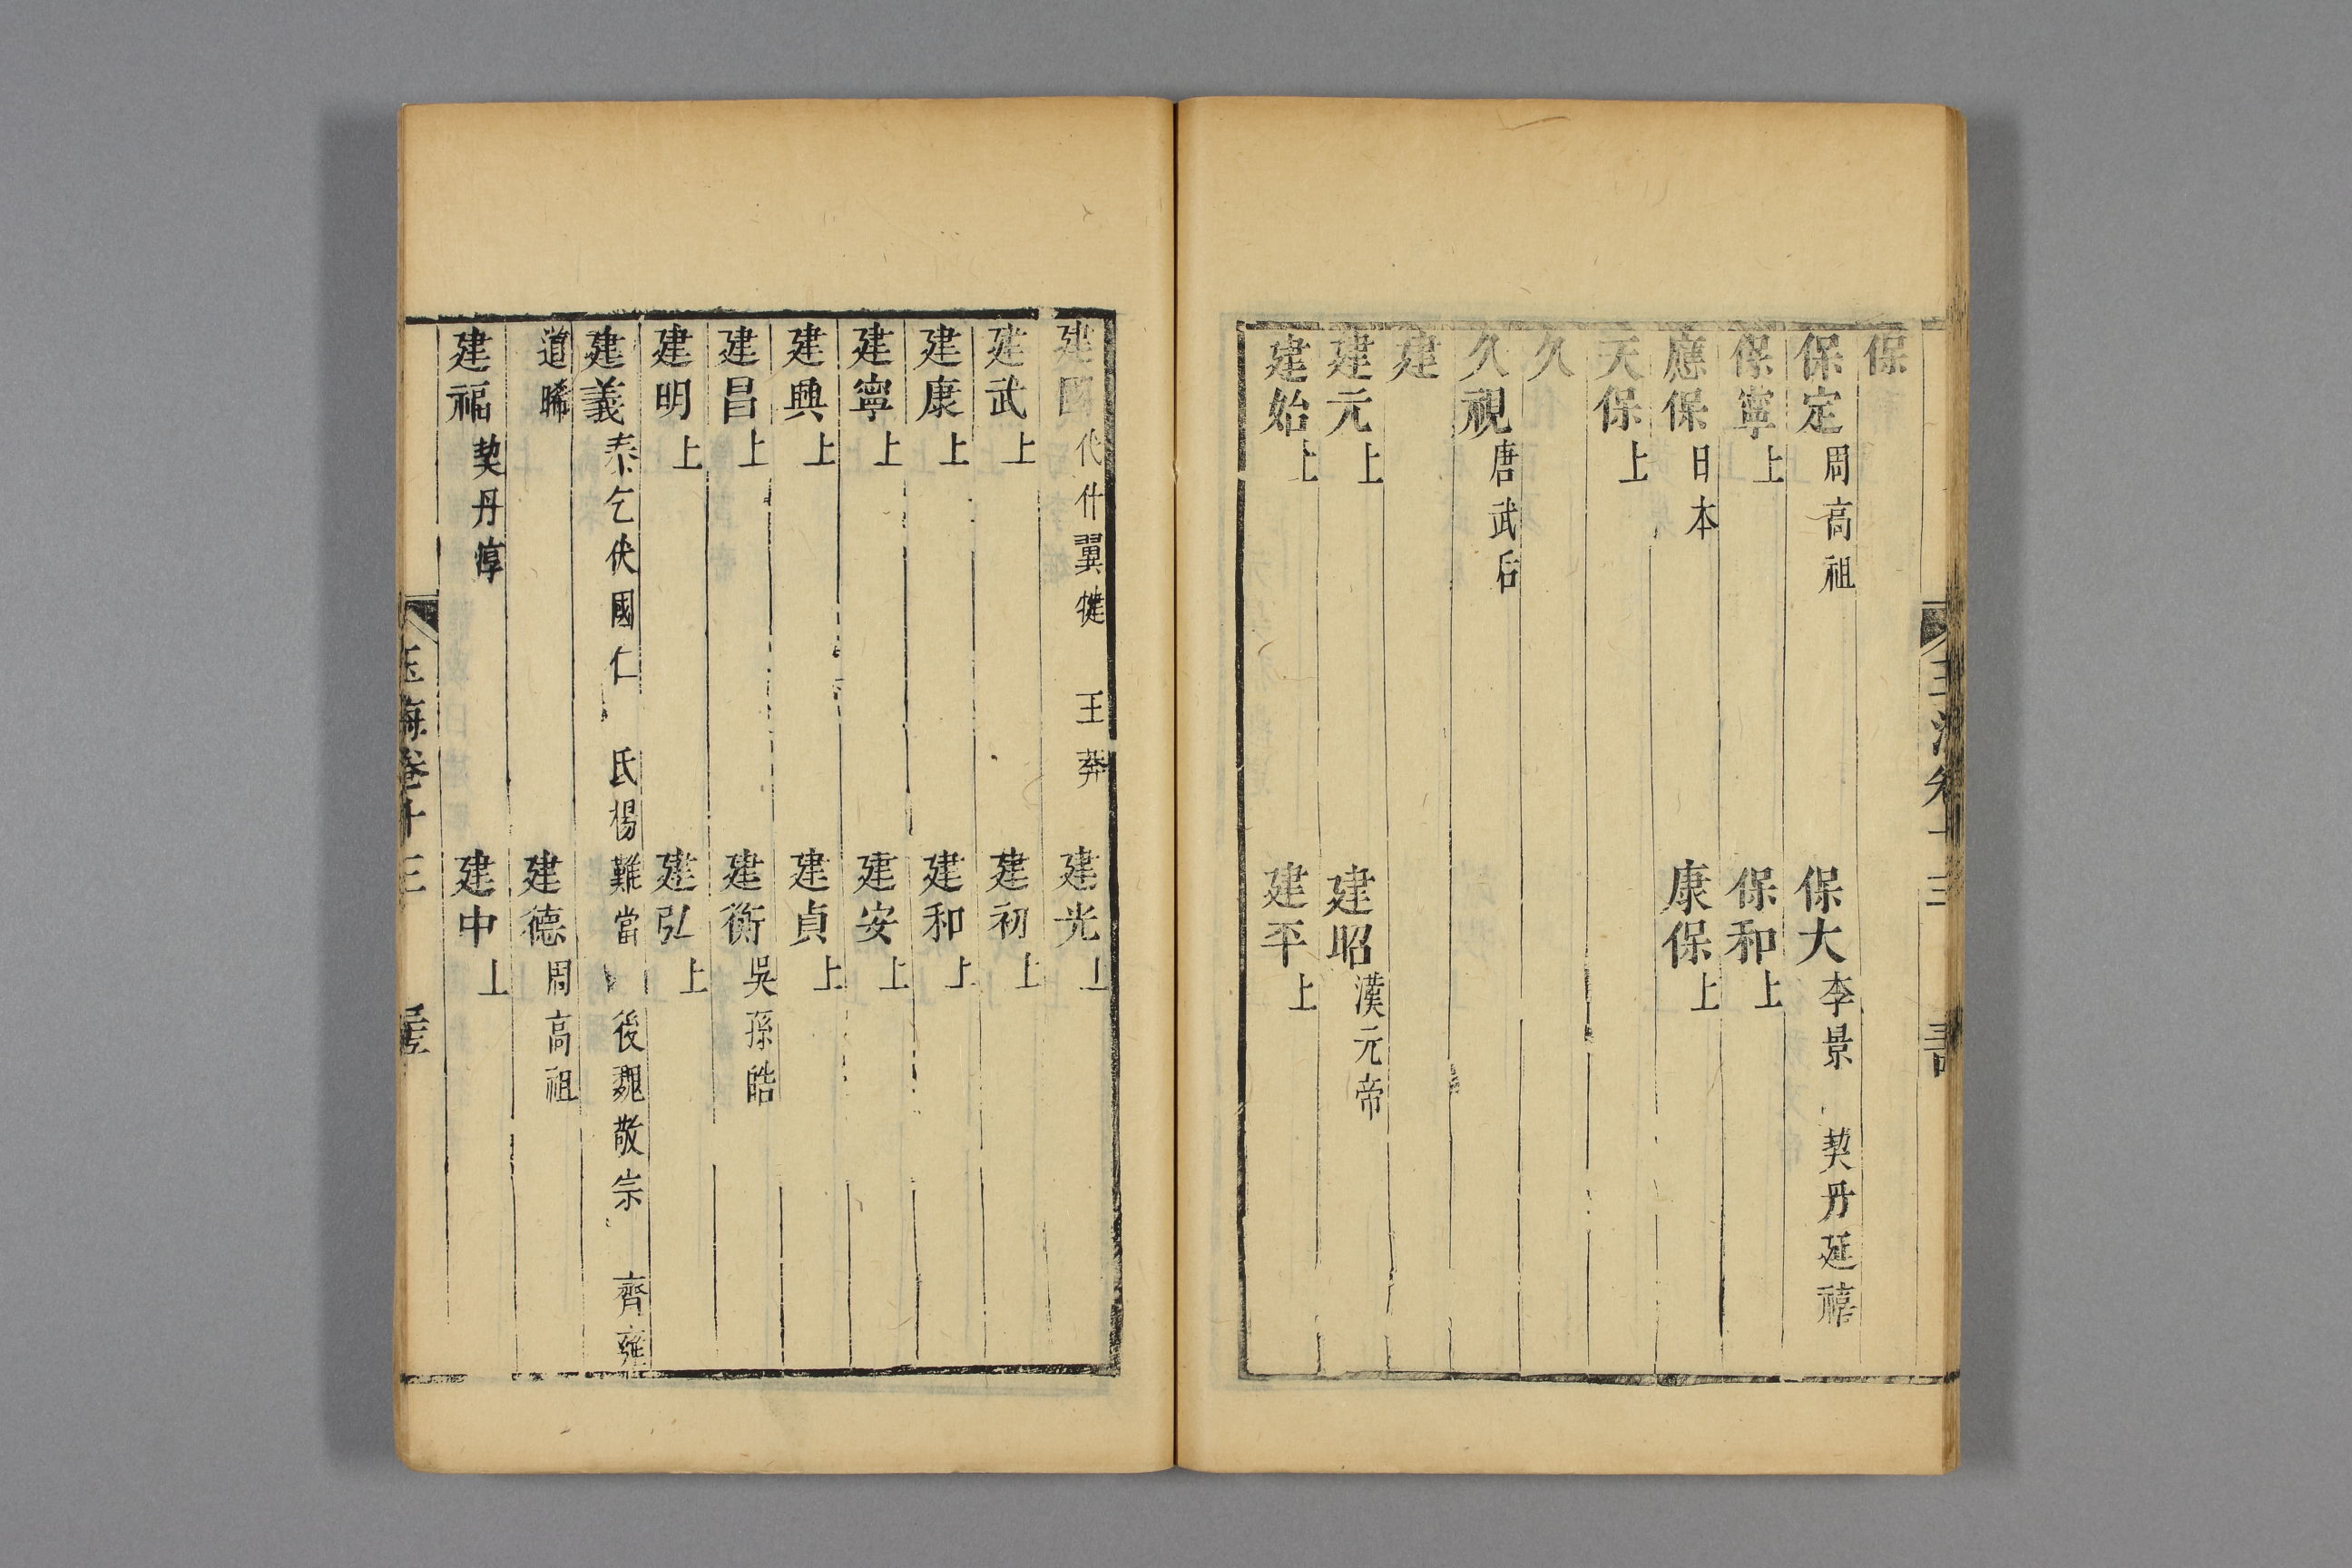 保
保定周高祖 保大李景 契丹延禧
保寧上 保和上
應保日本 康保上
天保上
久
久視唐武后
建
建元上 建昭漢元帝
建始上 建平上
建國代什翼犍 王莽 建光上
建武上 建初上
建康上 建和上
建寧上 建安上
建興上 建貞上
建昌上 建衡吳孫皓
建明上 建弘上
建義秦乞伏國仁 氏楊難當 後魏敬宗 齊雍
道晞 建德周高祖
建福契丹淳 建中上
玉海卷十三